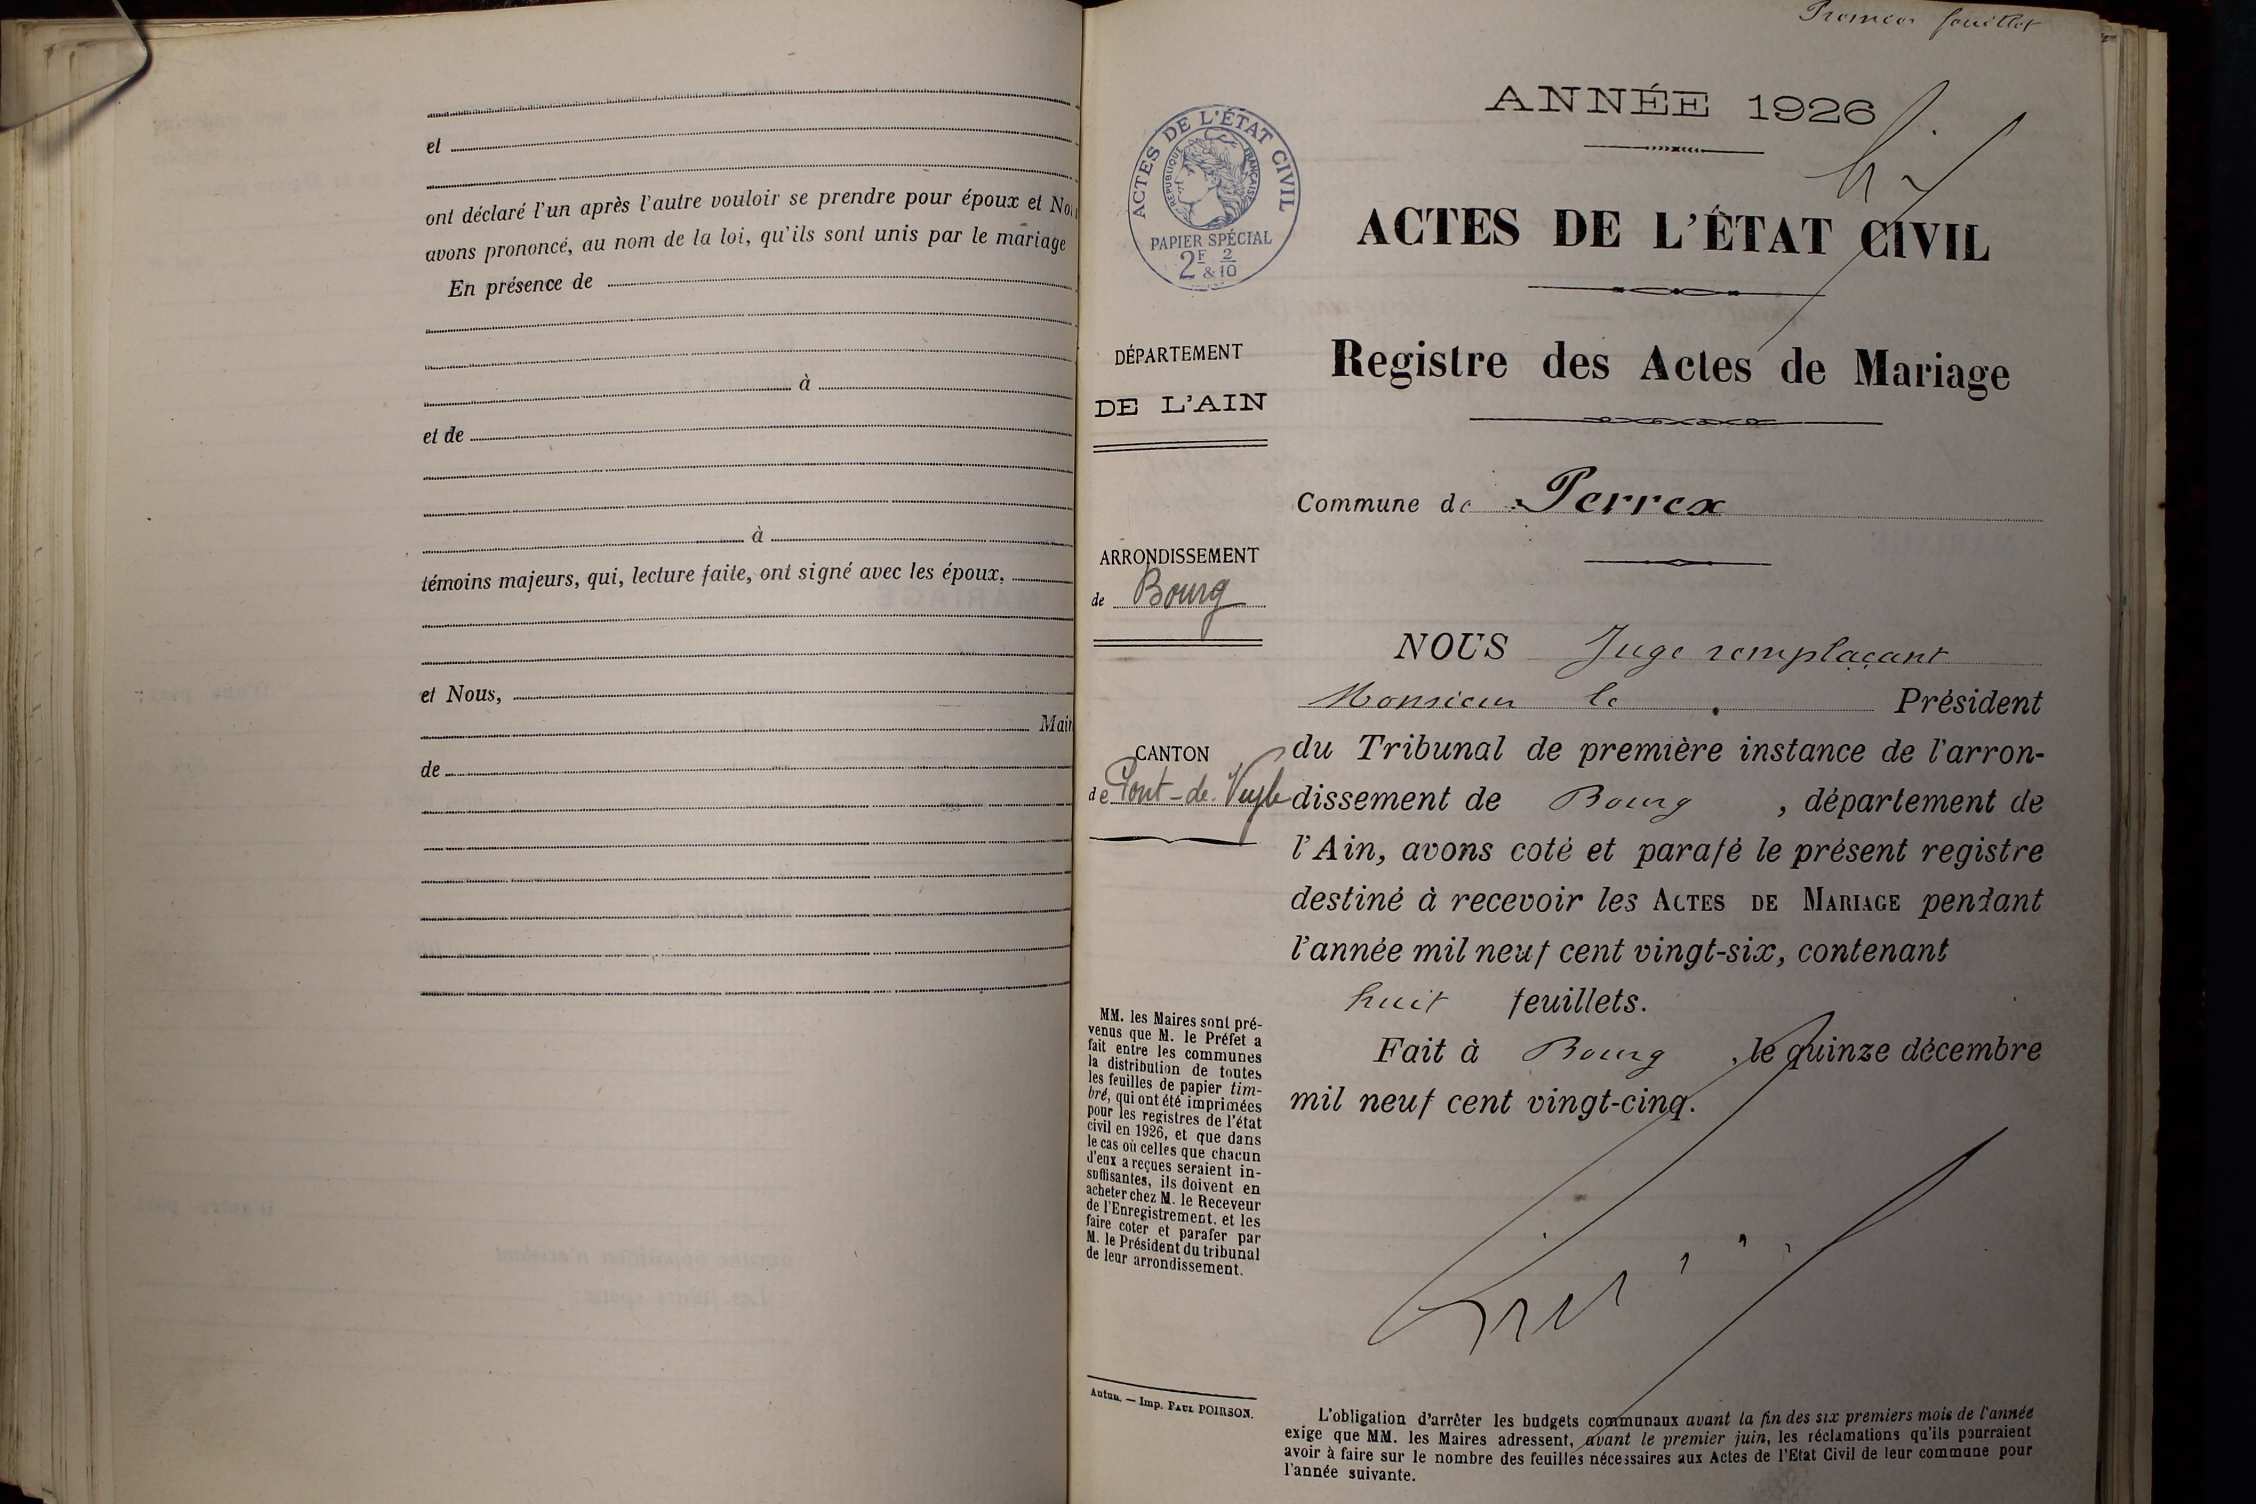 et
ont déclaré l'un après l'autre vouloir se prendre pour époux et Nou
avons prononcé, au nom de la loi, qu'ils sont unis par le mariage
En présence de
à
et de
à
témoins majeurs, qui, lecture faite, ont signé avec les époux,
et Nous,
Mair
de
Premier feuillet
ANNÉE 1926
ACTES DE L'ÉTAT CIVIL
RÉPUBLIQUE FRANÇAISE
PAPIER SPÉCIAL
2F 2
& 10
ACTES DE L'ÉTAT CIVIL
Registre des Actes de Mariage
DÉPARTEMENT
DE L'AIN
Commune de Perrex
ARRONDISSEMENT
de Bourg
CANTON
de Pont-de-Veyle
NOUS Juge remplaçant
Monsieur le Président
du Tribunal de première instance de l'arron-
dissement de Bourg, département de
l'Ain, avons coté et parafé le présent registre
destiné à recevoir les ACTES DE MARIAGE pendant
l'année mil neuf cent vingt-six, contenant
huit feuillets.
Fait à Bourg, le quinze décembre
mil neuf cent vingt-cinq.
MM. les Maires sont pré-
venus que M. le Préfet a
fait entre les communes
la distribution de toutes
les feuilles de papier tim-
bré, qui ont été imprimées
pour les registres de l'état
civil en 1926, et que dans
le cas où celles que chacun
d'eux a reçues seraient in-
suffisantes, ils doivent en
acheter chez M. le Receveur
de l'Enregistrement, et les
faire coter et parafer par
M. le Président du tribunal
de leur arrondissement.
Autun. — Imp. PAUL POIRSON.
L'obligation d'arrêter les budgets communaux avant la fin des six premiers mois de l'année
exige que MM. les Maires adressent, avant le premier juin, les réclamations qu'ils pourraient
avoir à faire sur le nombre des feuilles nécessaires aux Actes de l'Etat Civil de leur commune pour
l'année suivante.